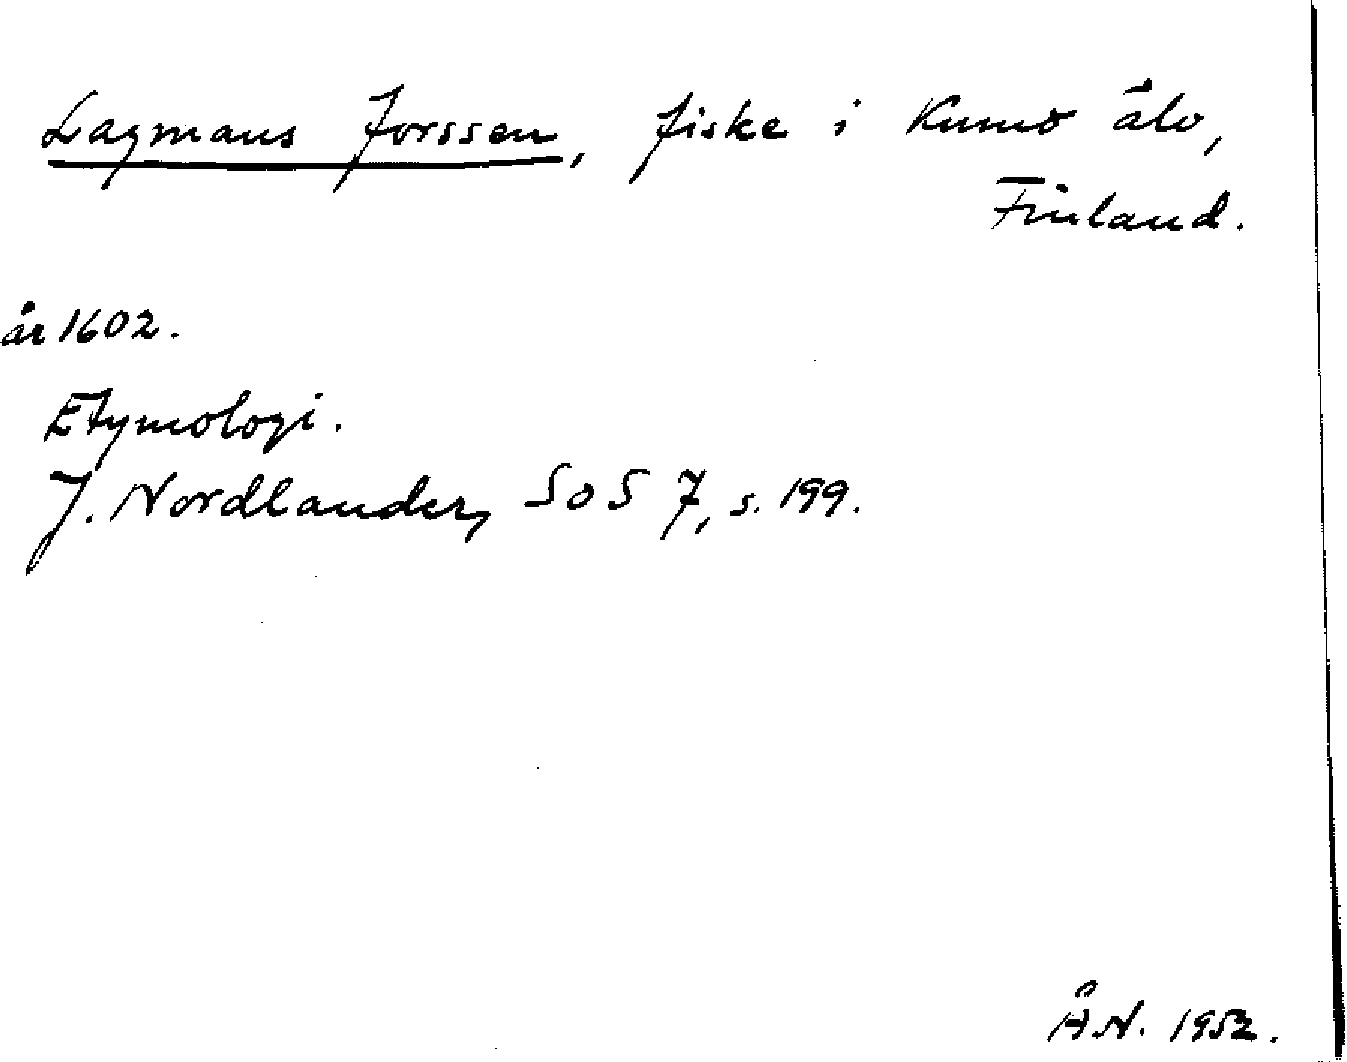 Lagmans forssen, fiske i Kumo älv,
Finland.
år 1602.
Etymologi.
J. Nordlander, SoS 7, s. 199.
Å.N. 1952.